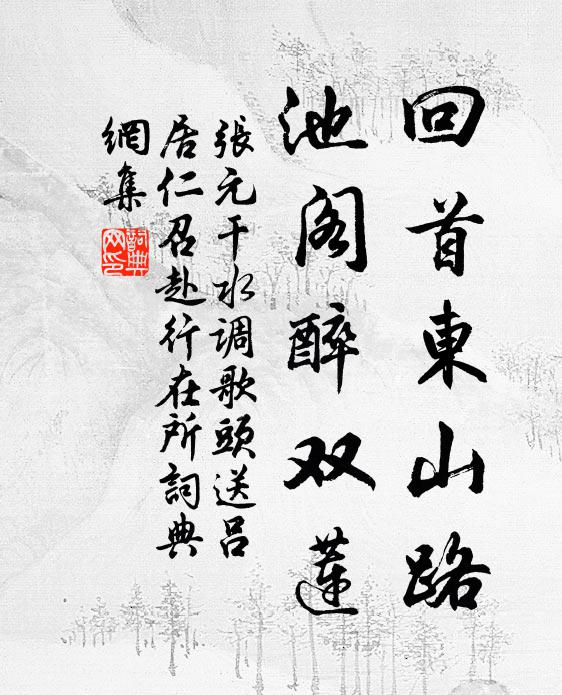 回首東山路
池阁醉双蓮
張元干水调歌頭送吕
居仁召赴行在所詞典
網集
詞典
网印